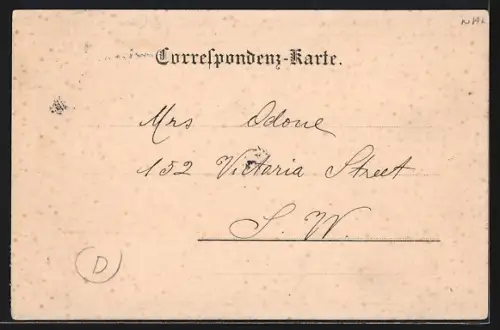 Correſpondenz-Karte.
Mrs Odone
152 Victoria Street
S. W.
D